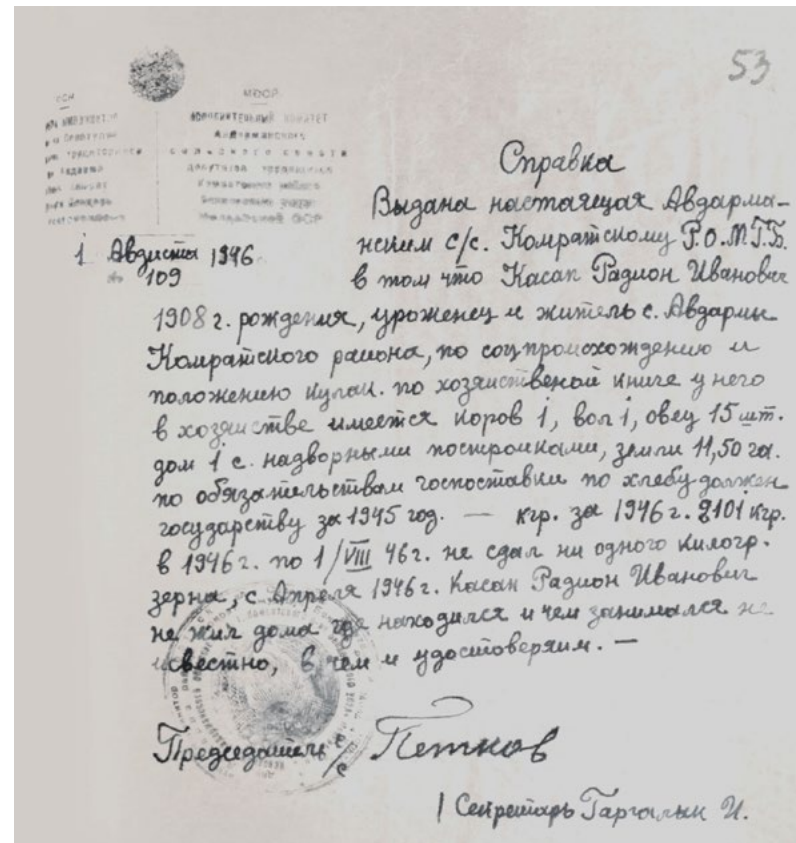 53
МССР
ИСПОЛНИТЕЛЬНЫЙ КОМИТЕТ
Авдарминского
сельского совета
депутатов трудящихся
Комратского района
Бендерского уезда
Молдавской ССР
Справка
Выдана настоящая Авдарма-
1 Августа 1946
 нским с/с. Комратскому Р.О.М.Г.Б.
109
в том что Касап Радион Иванович
1908 г. рождения, уроженец и житель с. Авдармы
Комратского района, по соцпроисхождению и
положению кулак. по хозяиственой книге у него
в хозяистве имеется коров 1, вол 1, овец 15 шт.
дом 1 с. надворными постройками, земли 11,50 га.
по обязательствам госпоставки по хлебу должен
государству за 1945 год. — кгр. за 1946 г. 2101 кгр.
в 1946 г. по 1/VIII 46 г. не сдал ни одного килогр.
зерна, с Апреля 1946 г. Касап Радион Иванович
не жил дома где находился и чем занимался не
известно, в чем и удостоверяим. —
Председатель с/с Петков
/ Секретарь Гаргалык И.